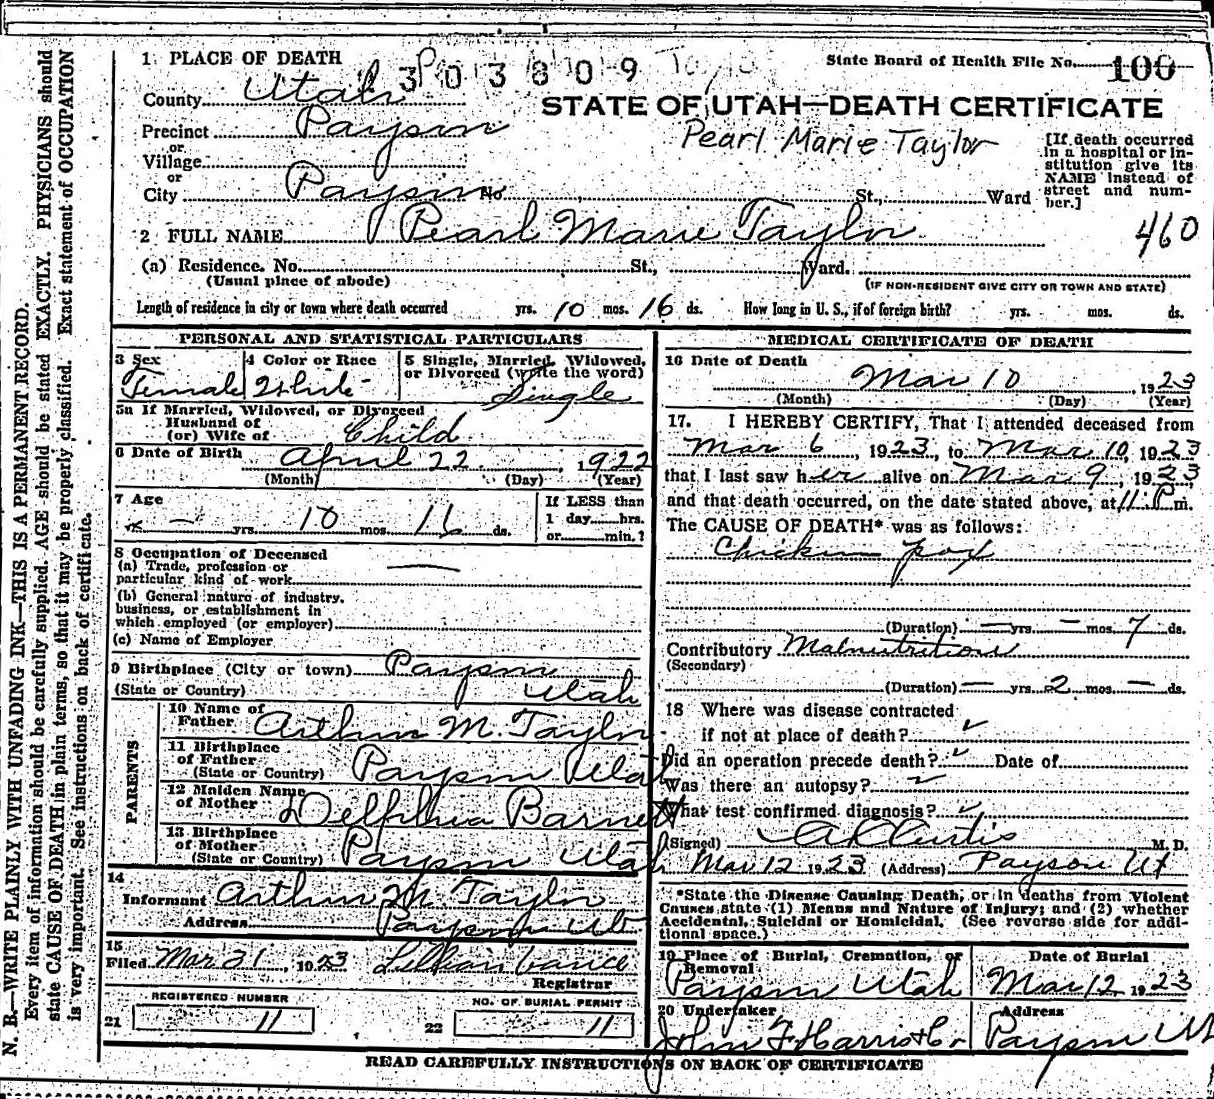 1 PLACE OF DEATH
303809
State Board of Health File No. 100
County Utah
STATE OF UTAH—DEATH CERTIFICATE
Precinct Payson
Pearl Marie Taylor
or
Village
or
City Payson No. St., Ward
[If death occurred
in a hospital or in-
stitution give its
NAME instead of
street and num-
ber.]
2 FULL NAME Pearl Marie Taylor
460
(a) Residence. No. St., Ward.
(Usual place of abode)
(IF NON-RESIDENT GIVE CITY OR TOWN AND STATE)
Length of residence in city or town where death occurred yrs. 10 mos. 16 ds. How long in U. S., if of foreign birth? yrs. mos. ds.
PERSONAL AND STATISTICAL PARTICULARS
3 Sex
Female
4 Color or Race
White
5 Single, Married, Widowed,
or Divorced (write the word)
Single
5a If Married, Widowed, or Divorced
Husband of
(or) Wife of Child
6 Date of Birth April 22, 1922
(Month) (Day) (Year)
7 Age
— yrs. 10 mos. 16 ds.
If LESS than
1 day......hrs.
or......min.?
8 Occupation of Deceased
(a) Trade, profession or
particular kind of work —
(b) General nature of industry,
business, or establishment in
which employed (or employer)
(c) Name of Employer
9 Birthplace (City or town) Payson
(State or Country) Utah
PARENTS
10 Name of
Father Arthur M. Taylor
11 Birthplace
of Father
(State or Country) Payson Utah
12 Maiden Name
of Mother Delphia Barnett
13 Birthplace
of Mother
(State or Country) Payson Utah
14
Informant Arthur M. Taylor
Address Payson Ut
15
Filed Mar 31, 1923 Lillian Vance
Registrar
REGISTERED NUMBER
21 11
NO. OF BURIAL PERMIT
22 11
MEDICAL CERTIFICATE OF DEATH
16 Date of Death
Mar 10, 1923
(Month) (Day) (Year)
17. I HEREBY CERTIFY, That I attended deceased from
Mar 6, 1923, to Mar 10, 1923
that I last saw her alive on Mar 9, 1923
and that death occurred, on the date stated above, at 11 P m.
The CAUSE OF DEATH* was as follows:
Chicken pox
(Duration) — yrs. — mos. 7 ds.
Contributory Malnutrition
(Secondary)
(Duration) — yrs. 2 mos. — ds.
18 Where was disease contracted
if not at place of death?
Did an operation precede death? Date of
Was there an autopsy?
What test confirmed diagnosis?
(Signed) A L Curtis M. D.
Mar 12 1923 (Address) Payson Ut
*State the Disease Causing Death, or in deaths from Violent
Causes state (1) Means and Nature of Injury; and (2) whether
Accidental, Suicidal or Homicidal. (See reverse side for addi-
tional space.)
19 Place of Burial, Cremation, or
Removal
Payson Utah
Date of Burial
Mar 12 1923
20 Undertaker
John F Harris & Co
Address
Payson Ut
READ CAREFULLY INSTRUCTIONS ON BACK OF CERTIFICATE
N. B.—WRITE PLAINLY WITH UNFADING INK—THIS IS A PERMANENT RECORD.
Every item of information should be carefully supplied. AGE should be stated EXACTLY. PHYSICIANS should
state CAUSE OF DEATH in plain terms, so that it may be properly classified. Exact statement of OCCUPATION
is very important. See instructions on back of certificate.